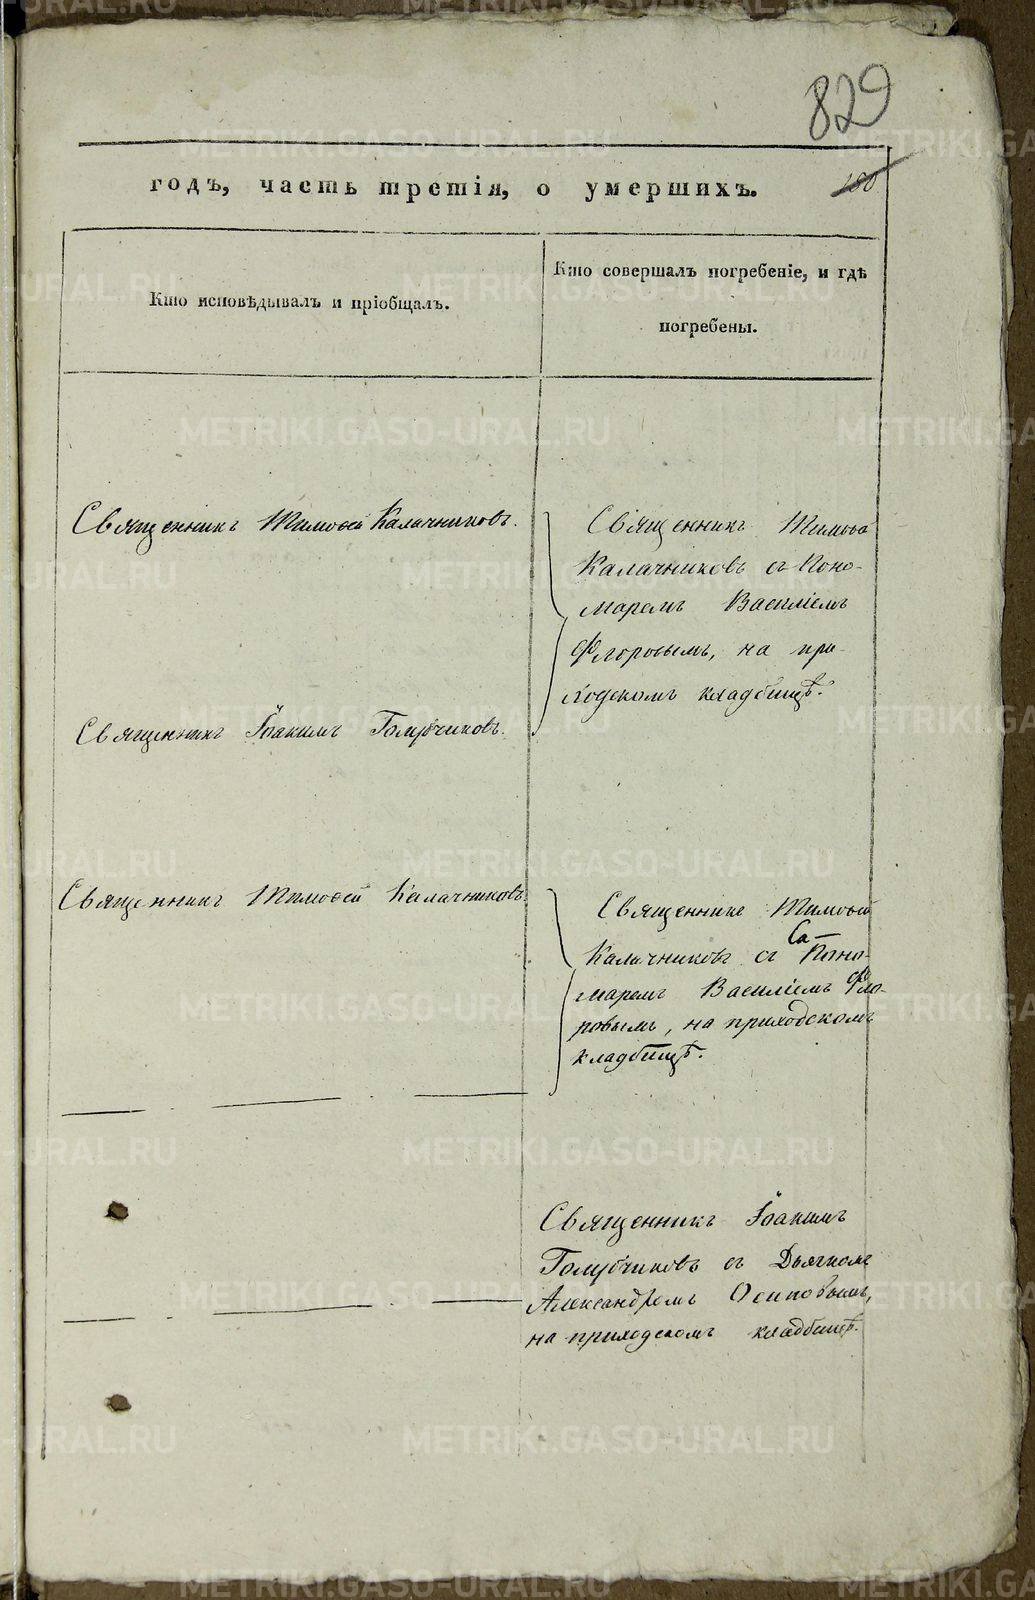 829
годъ, часть третія, о умершихъ.
180
Кто исповѣдывалъ и пріобщалъ.
Кто совершалъ погребеніе, и гдѣ
погребены.
Священникъ Тимофей Калачниковъ.
Священникъ Тимофей
Калачниковъ съ Поно-
маремъ Василіемъ
Флоровымъ, на при-
ходскомъ кладбищѣ.
Священникъ Іоакимъ Голубчиковъ.
Священникъ Тимофей Калачниковъ
Священникъ Тимофей
Калачниковъ съ Поно-
маремъ Василіемъ Фло-
ровымъ, на приходскомъ
кладбищѣ.
Священникъ Іоакимъ
Голубчиковъ съ Дьячкомъ
Александромъ Осиповымъ,
на приходскомъ кладбищѣ.
METRIKI.GASO-URAL.RU